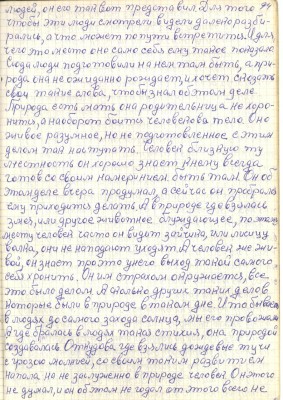 людей, он его так вот представил. Для того 94
чтобы эти люди смотрели видели далеко разби-
рались, а что может попути встретится. И для
чего это место оно само себя ему такое показало
Сюда люди подготовили на нем там быть, а при-
рода она не ожиданно рождает, и хочет сказать
свои такие слова, чтобы знал об этом деле
Природа есть мать она родительница не хоро-
нить, а наоборот быть человекова тело. Оно
живое разумное, но не подготовленное с этим
делом так наступать. Человек близкую ту
местность он хорошо знает, к нему всегда
готов со своим намерением быть там. Он об
этом деле вчера продумал, а сейчас он
ему приходится делать. А в природе где взялась
змея, или другое животное блуждающее, по этому
месту человек часто он видит зайчика, или лисицу
волка, они не нападают уходят. А человек же жи-
вой, он знает про это у него выход такой самого
себя хоронить. Он им страхом окружается, все
это было делом. А сколько других таких делов
которые были в природе в таком дне. И то бывает
в людях до самого захода солнца, мы его провожаем
А где бралась в людях такая стихия, она природой
создавалась. Откудова где взялись дождевые тучи
с грозою молнией, со своим таким развитием
напала не не заслуженно в природе человек. Он этого
не думал, и он об этом не годал, от этого всего не